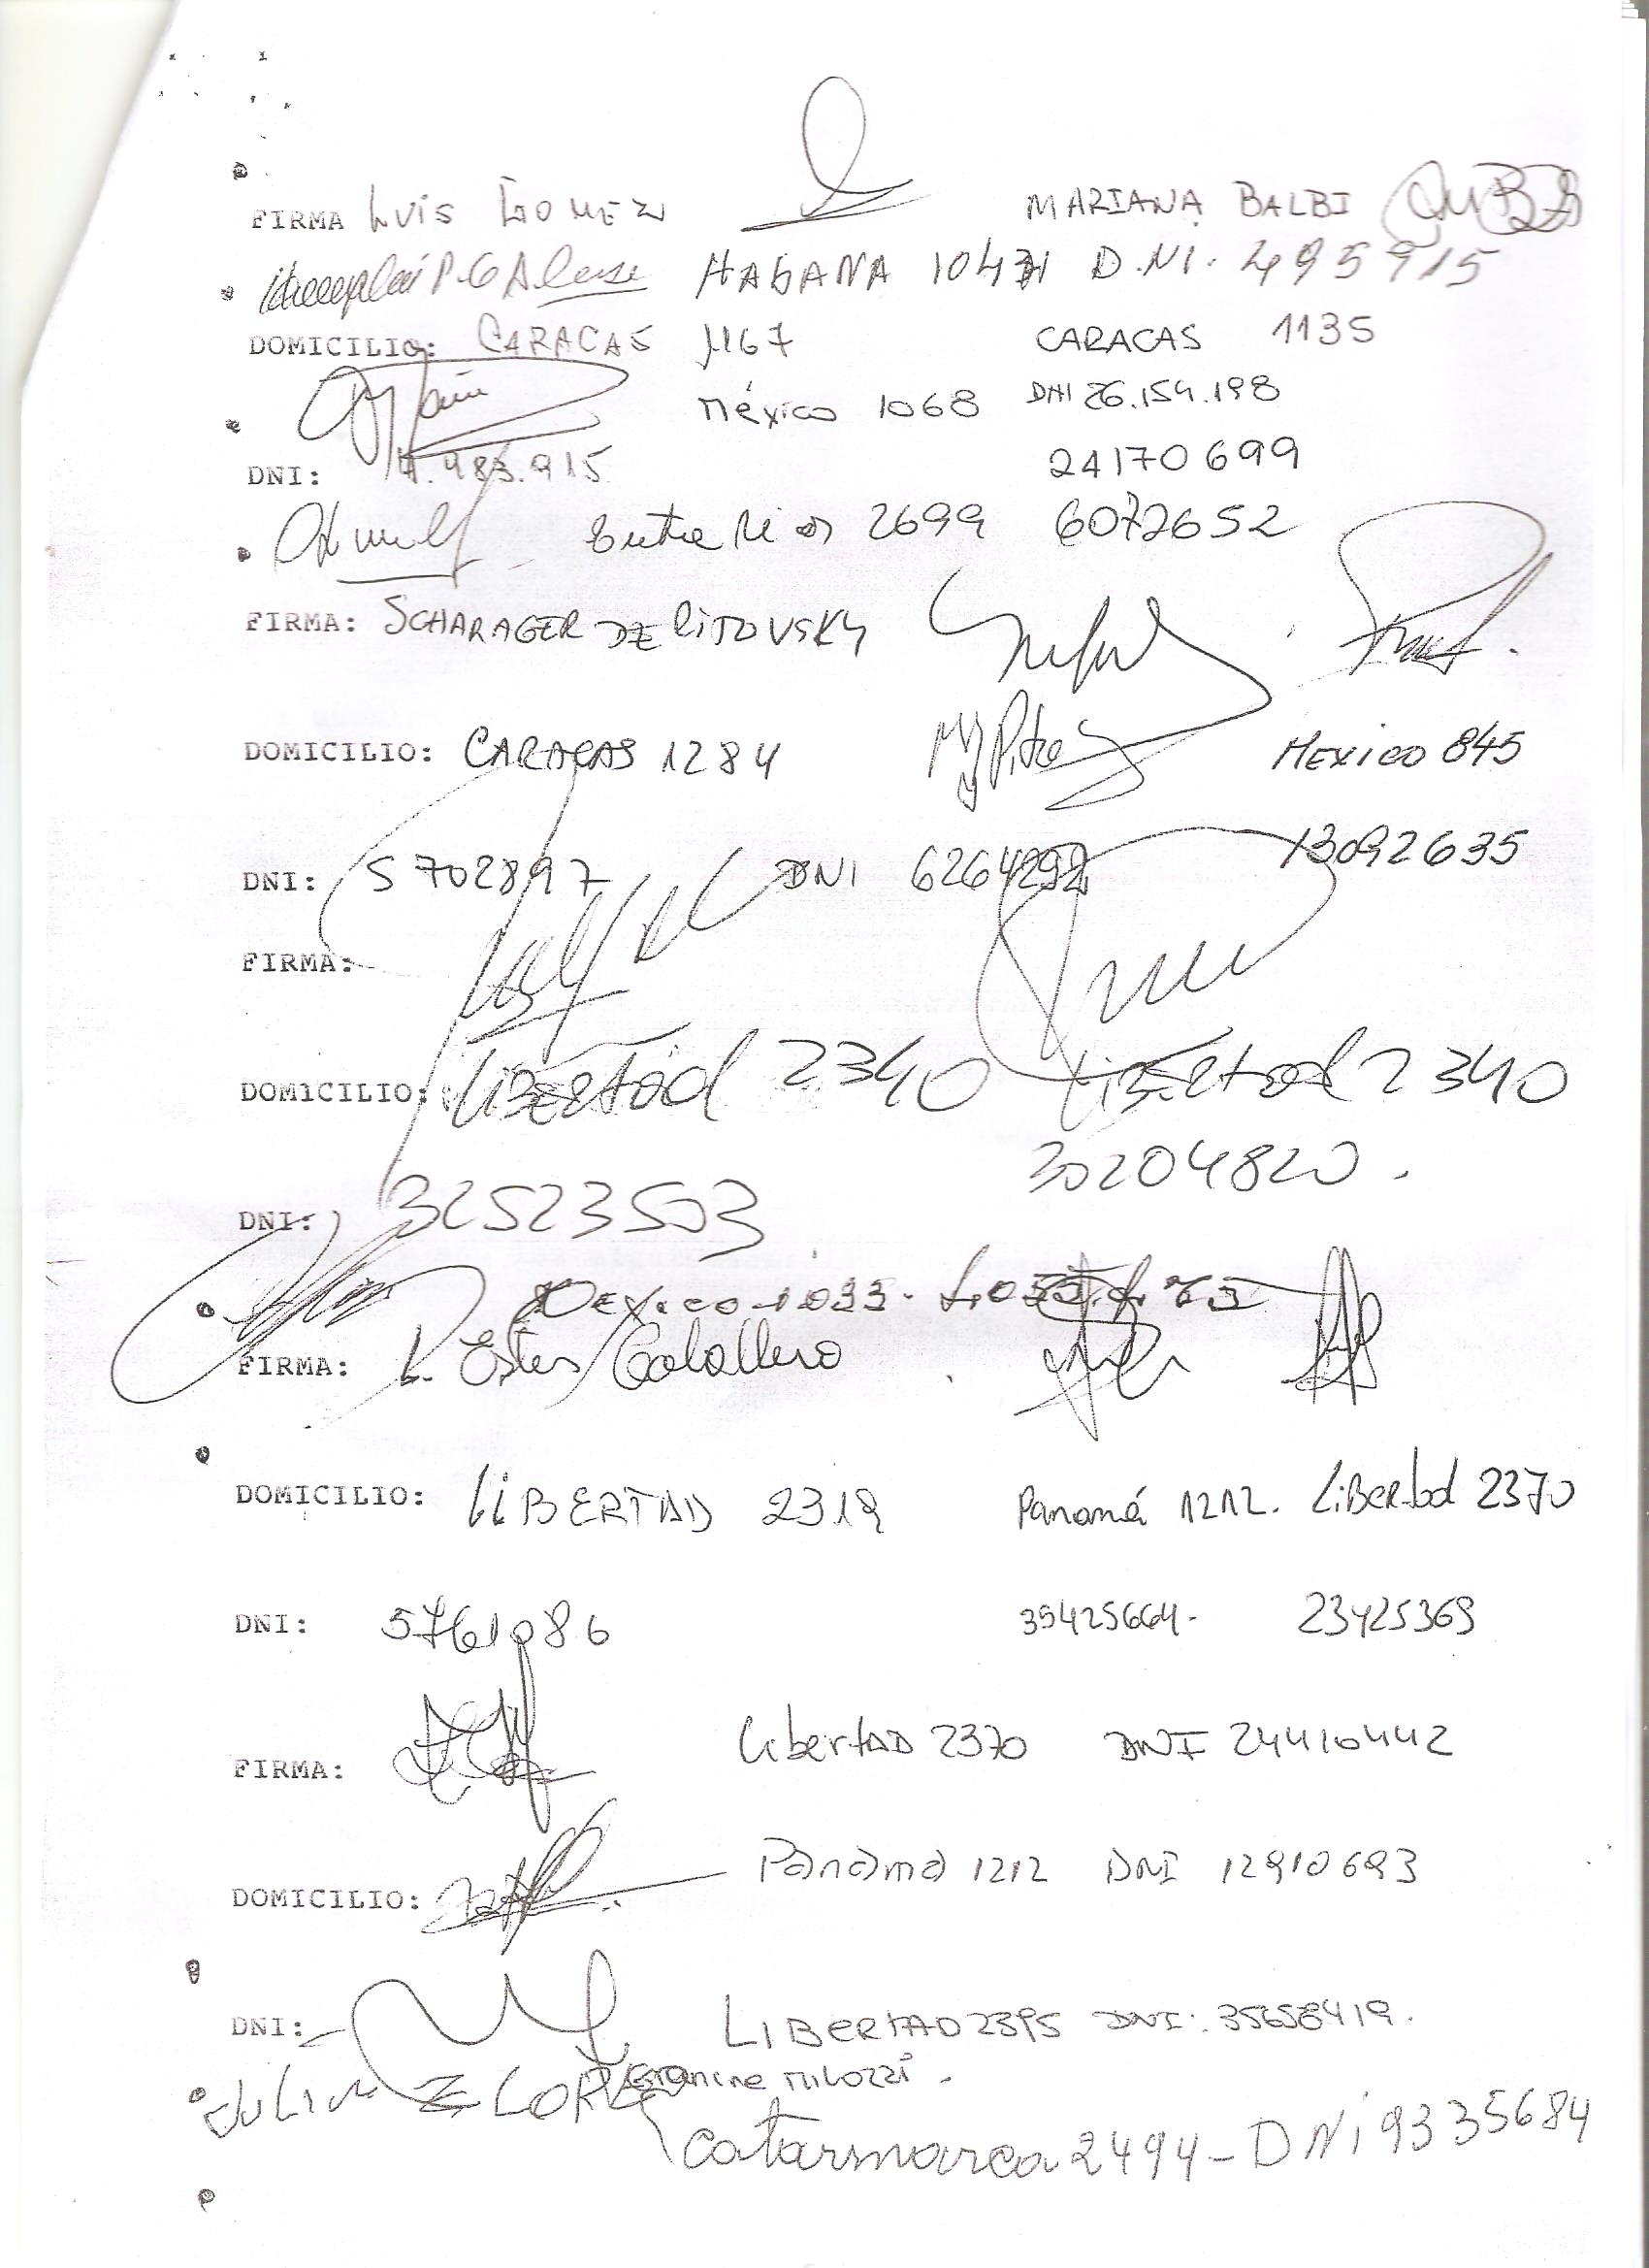 FIRMA Luis Gomez MARIANA BALBI
HABANA 10471 D.NI. 495915
DOMICILIO: CARACAS 1167 CARACAS 1135
México 1068 DNI 26.154.198
DNI: 4.983.915 24170699
Entre Rios 2699 6072652
FIRMA: SCHARAGER DE LITOVSKY
DOMICILIO: CARACAS 1284 MEXICO 845
DNI: 5702897 DNI 6264292 13092635
FIRMA:
DOMICILIO: LIBERtad 2340 LiBERtad 2340
30204820.
DNI: 32523503
Mexico 1033-
FIRMA: L. Ester Caballero
DOMICILIO: LIBERTAD 2319 Panamá 1212. LiBERtad 2370
DNI: 5761086 35425664- 23425369
FIRMA: LibertAD 2370 DNI 24410442
DOMICILIO: Panama 1212 DNI 12910693
DNI: LIBERTAD 2395 DNI: 35658419.
JuLiA
catarmarca 2494-DNi 9335684